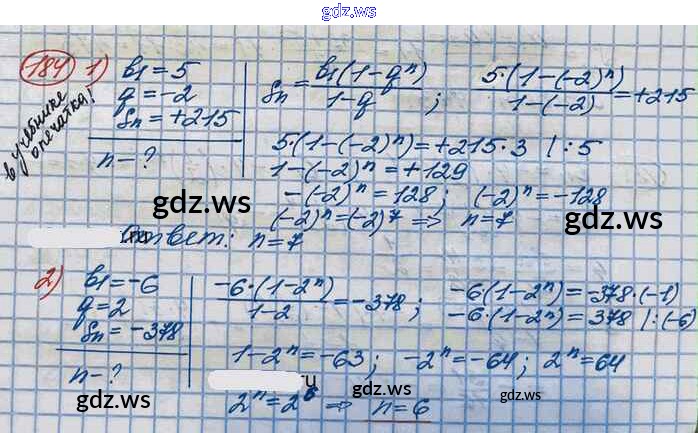 gdz.ws
184 1) b₁ = 5
q = -2
Sn = +215
n - ?
в учебнике опечатка!
Sn = b₁(1-qⁿ)/1-q ; 5·(1-(-2)ⁿ)/1-(-2) = +215
5·(1-(-2)ⁿ) = +215·3 | :5
1-(-2)ⁿ = +129
-(-2)ⁿ = 128 ; (-2)ⁿ = -128
(-2)ⁿ = (-2)⁷ ⇒ n = 7
gdz.ws
gdz.ws
gdz.ws
Ответ: n = 7
2) b₁ = -6
q = 2
Sn = -378
n - ?
-6·(1-2ⁿ)/1-2 = -378 ; -6(1-2ⁿ) = -378·(-1)
-6·(1-2ⁿ) = 378 | :(-6)
1-2ⁿ = -63 ; -2ⁿ = -64 ; 2ⁿ = 64
2ⁿ = 2⁶ ⇒ n = 6
gdz.ws
gdz.ws
gdz.ws